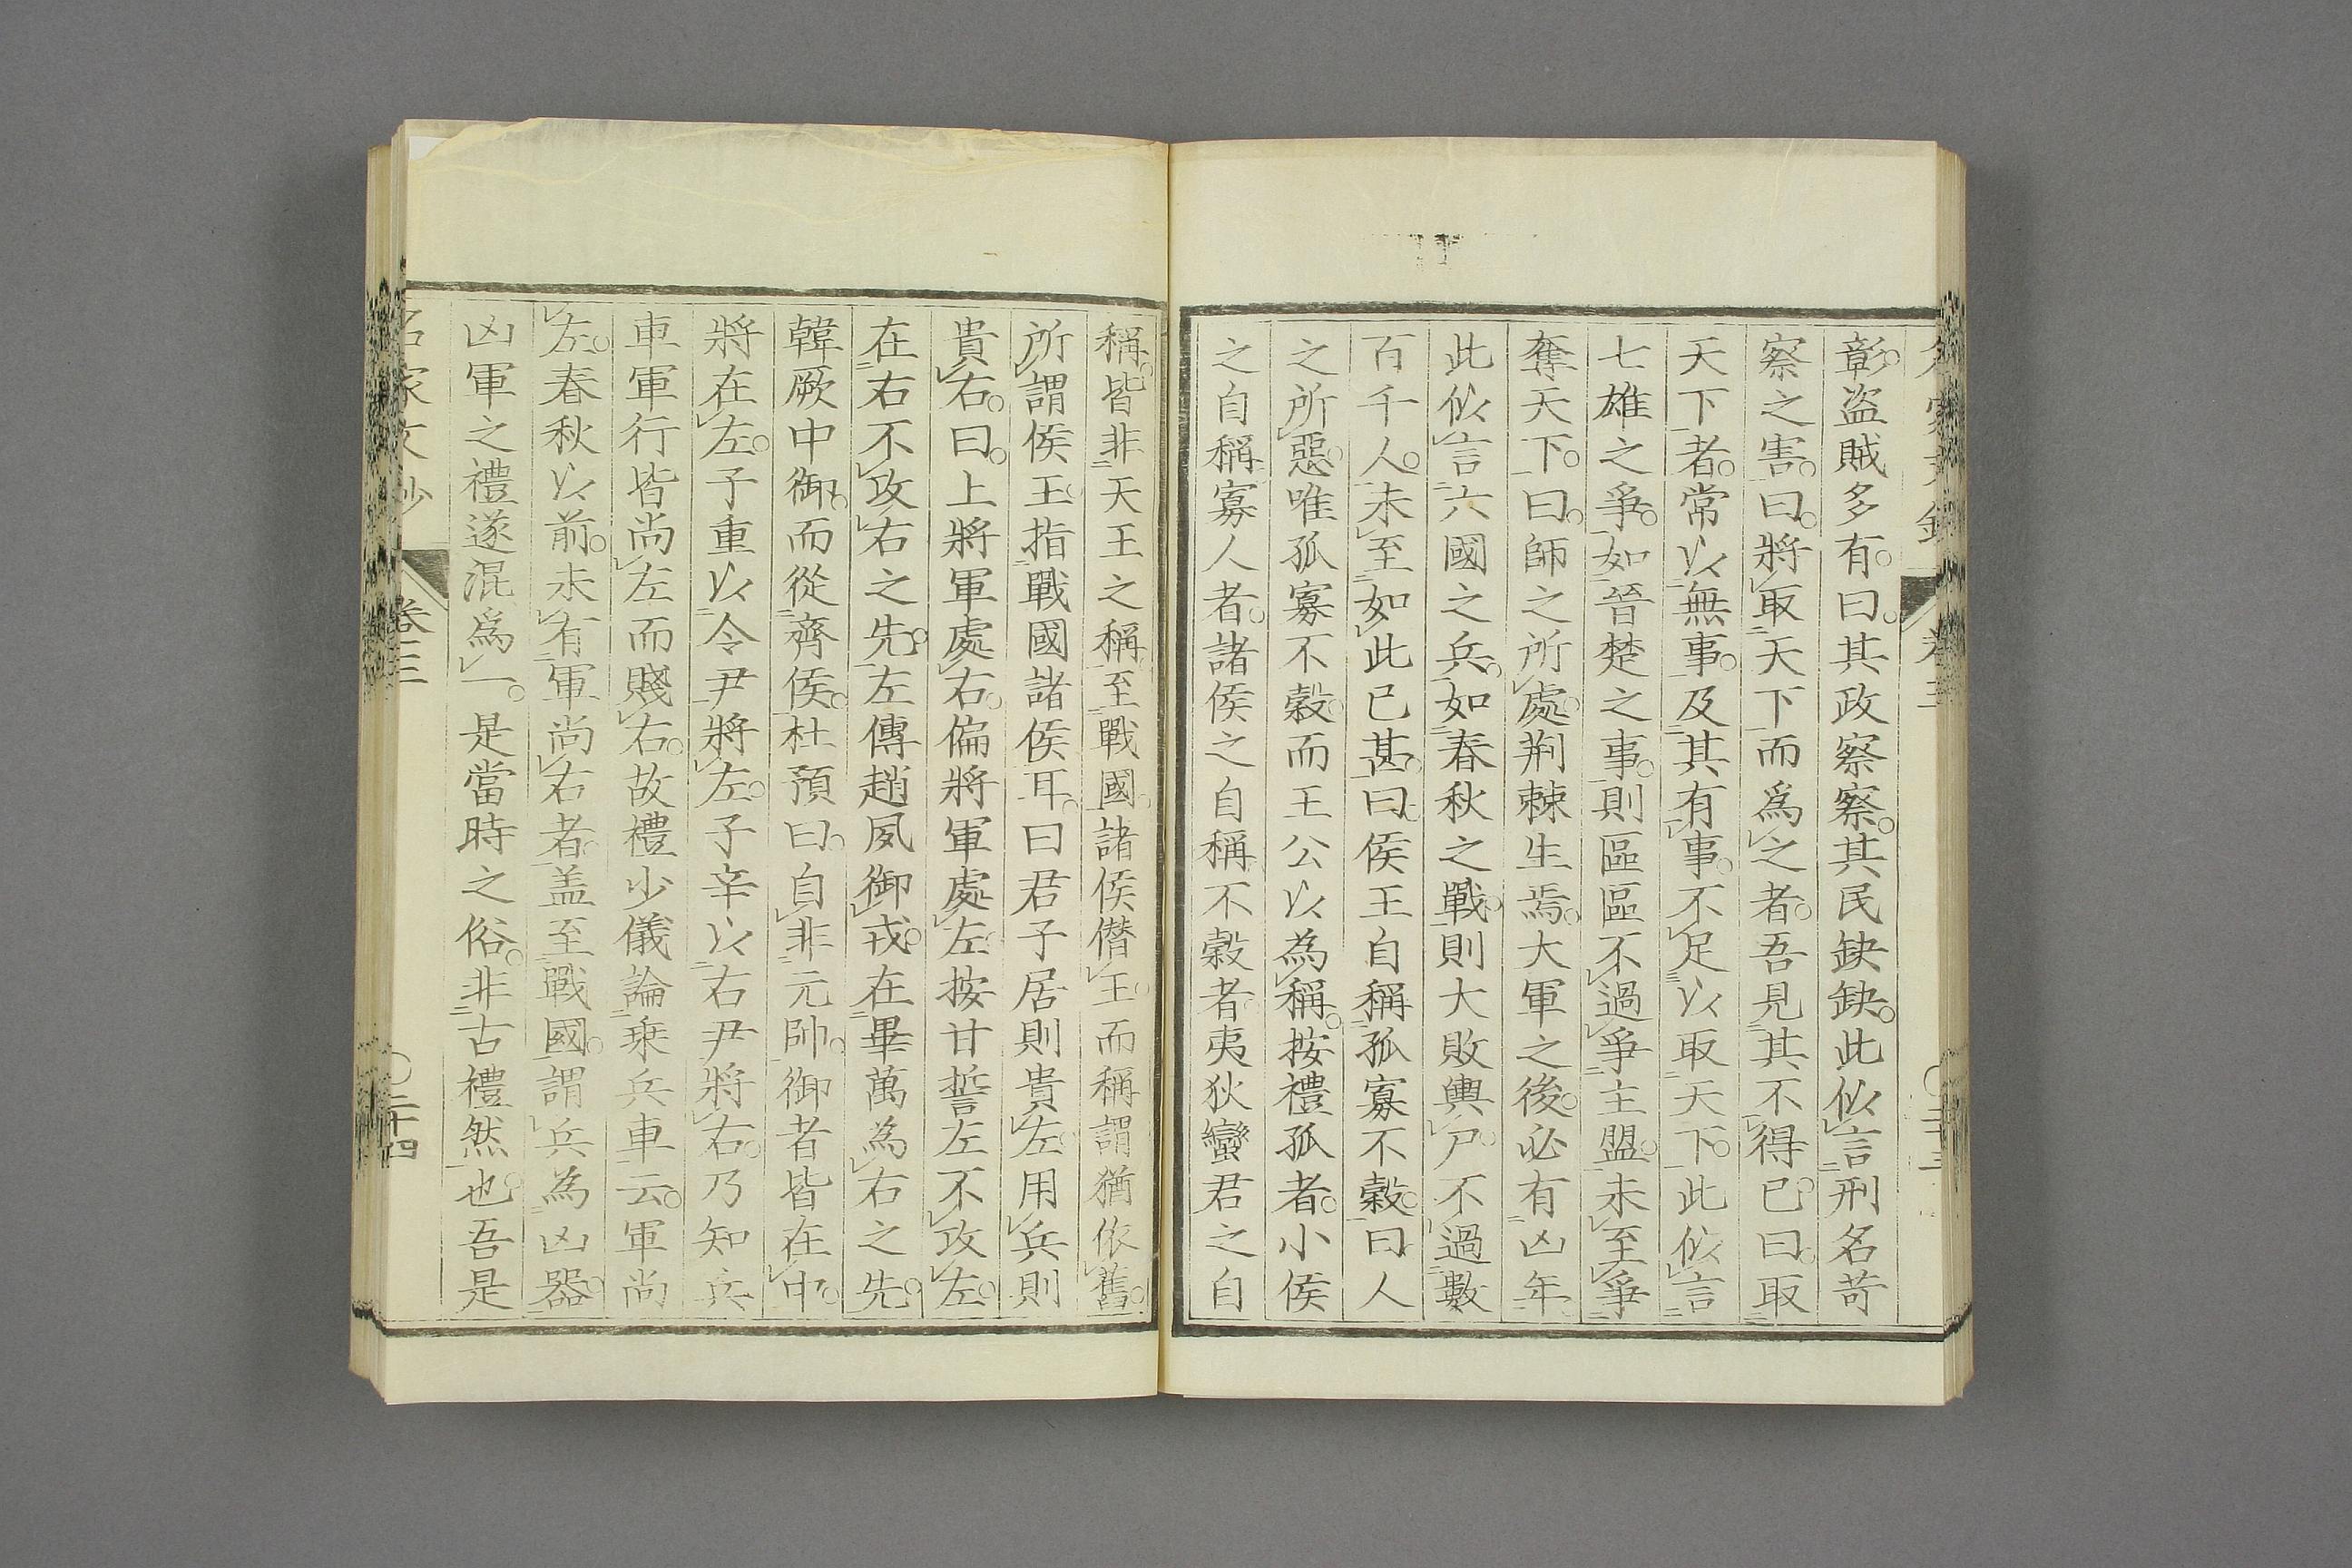 彰。盗賊多有。曰。其政察察。其民缺缺。此似言刑名苛
察之害。曰。將取天下而爲之者。吾見其不得已。曰。取
天下者。常以無事。及其有事。不足以取天下。此似言
七雄之爭。如晉楚之事。則區區不過爭主盟。未至爭
奪天下。曰。師之所處。荆棘生焉。大軍之後。必有凶年。
此似言六國之兵。如春秋之戰。則大敗輿尸。不過數
百千人。未至如此已甚。曰。侯王自稱孤寡不穀。曰人
之所惡。唯孤寡不穀。而王公以為稱。按禮孤者。小侯
之自稱。寡人者。諸侯之自稱。不穀者。夷狄蠻君之自
稱。皆非天王之稱。至戰國。諸侯僭王。而稱謂猶依舊。
所謂侯王。指戰國諸侯耳。曰君子居則貴左。用兵則
貴右。曰。上將軍處右。偏將軍處左。按甘誓左不攻左。
在右不攻右之先。左傳趙夙御戎。在畢萬為右之先。
韓厥中御。而從齊侯。杜預曰。自非元帥。御者皆在中。
將在左。子重以令尹將左。子辛以右尹將右。乃知兵
車軍行皆尚左而賤右。故禮少儀論乗兵車云。軍尚
左。春秋以前。未有軍尚右者。盖至戰國。謂兵為凶器。
凶軍之禮遂混爲一。是當時之俗。非古禮然也。吾是
名家文抄
卷三
〇二十四